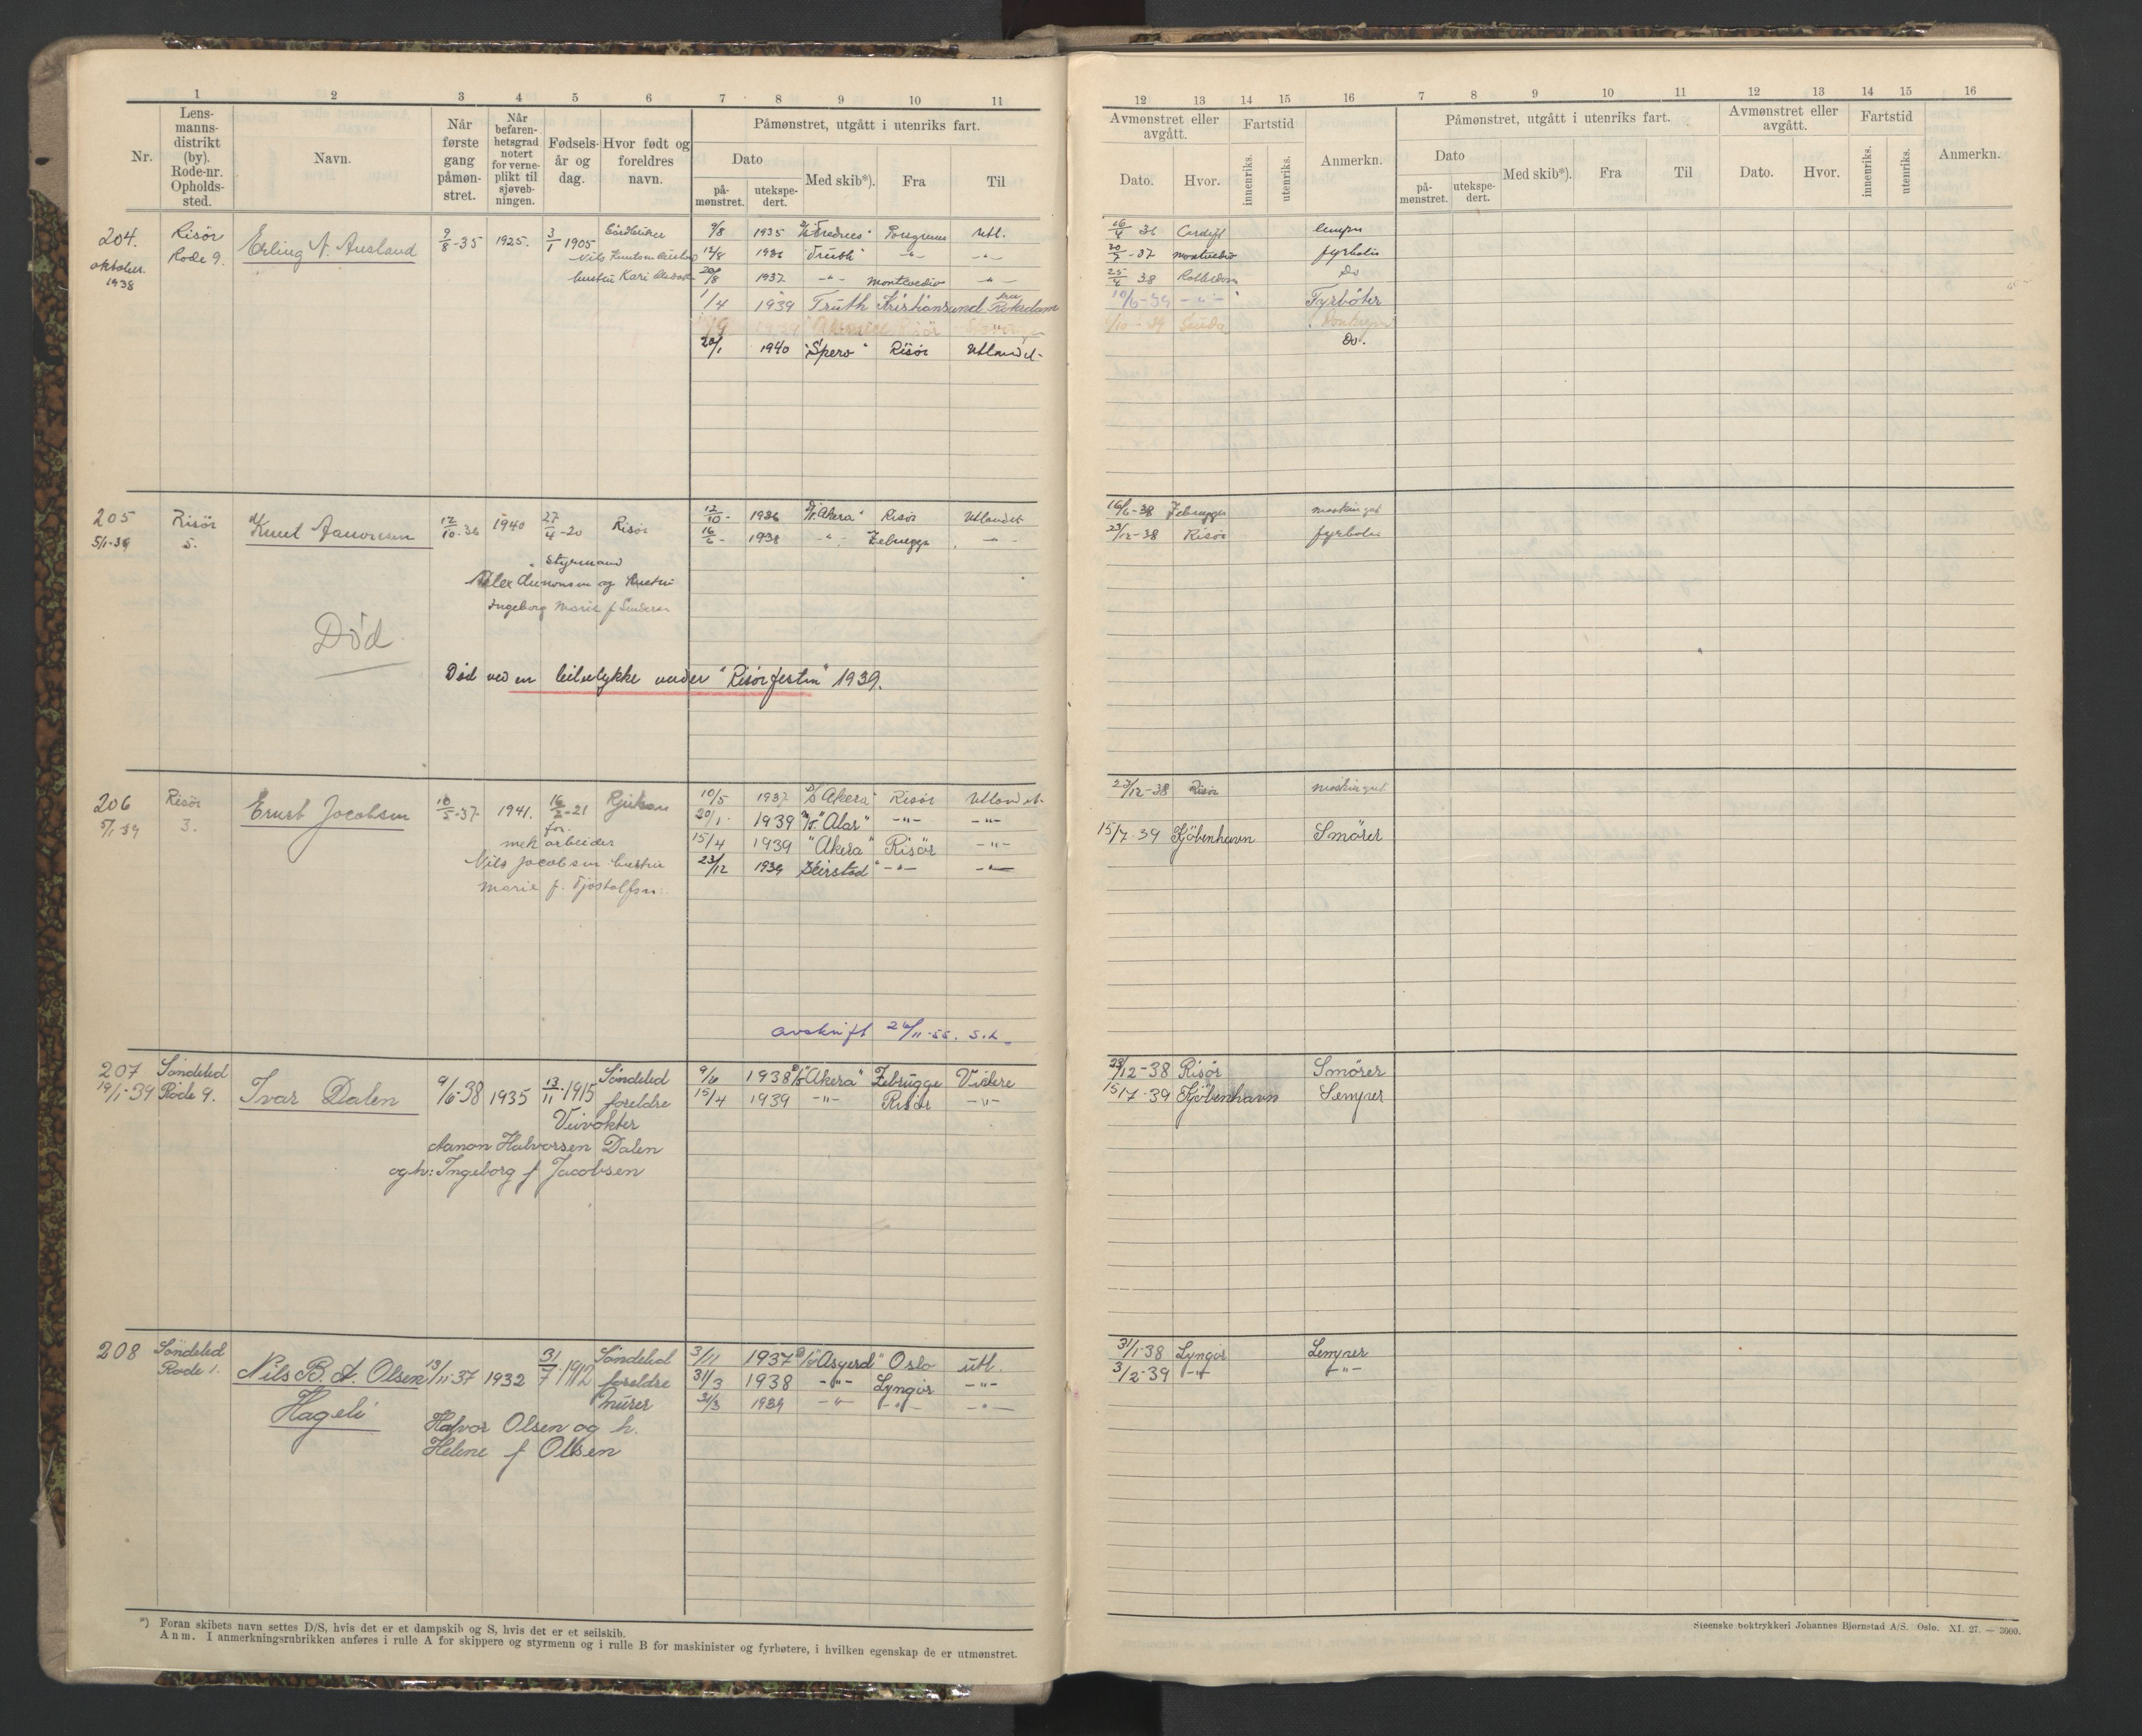 1 2 3 4 5 6 7 8 9 10 11
Nr.
Lens-
manns-
distrikt
(by).
Rode-nr.
Opholds-
sted.
Navn.
Når
første
gang
påmøn-
stret.
Når
befaren-
hetsgrad
notert
for verne-
plikt til
sjøveb-
ningen.
Fødsels-
år og
dag.
Hvor født og
foreldres
navn.
Påmønstret, utgått i utenriks fart.
Dato
på-
mønstret.
utekspe-
dert.
Med skib*).
Fra
Til
204.
oktober
1938
Risör
Rode 9.
Erling N. Ausland
9/8-35 1925. 3/1 1905
Nils Knutsen
hustru Kari
9/8 1935 Porsgrunn Utl.
12/8 1936 "Truth" -"- -"-
20/8 1937 -"- Montevedio -"-
1/4 1939 Truth Kristiansund
1939 Risör
20/1 1940 "Spero" Risör Utlandet
205
5/1-39
Risör
5.
Knut
12/10-36 1940 27/4-20 Risör
Styrmand
og hustru
Ingeborg Marie f.
12/10- 1936 D/S "Akera" Risör Utlandet
16/6- 1938 -"- Zebrugge -"-
Död
Död ved en bilulykke under "Risörfesten" 1939.
206
5/1-39
Risör
3.
Ernst Jacobsen
10/5-37 1941. 16/2-21 Rjukan
for.
mek arbeider
Nils Jacobsen hustru
Marie f. Tjostolfsen
10/5 1937 D/S "Akera" Risör Utlandet
20/1 1939 "Alar" -"- -"-
15/4 1939 "Akera" Risör -"-
23/12 1939 -"- -"-
avskrift 26/11-55.
207
19/1-39
Söndeled
Rode 9.
Ivar Dalen
9/6-38 1935 13/11-1915 Söndeled
foreldre
Veivokter
Aanon Halvorsen Dalen
og h: Ingeborg f Jacobsen
9/6 1938 D/S "Akera" Zebrugge Videre
15/4 1939 -"- Risör -"-
208
Söndeled
Rode 1.
Nils B. A. Olsen
Hageli
3/11-37 1932 31/7-1912 Söndeled
foreldre
Murer
Halvor Olsen og h.
Helene f Olsen
3/11 1937 "Asgerd" Oslo utl.
31/3 1938 -"- Lyngör -"-
3/3 1939 -"- -"- -"-
*) Foran skibets navn settes D/S, hvis det er et dampskib og S, hvis det er et seilskib.
Anm. I anmerkningsrubrikken anføres i rulle A for skippere og styrmenn og i rulle B for maskinister og fyrbøtere, i hvilken egenskap de er utmønstret.
12 13 14 15 16 7 8 9 10 11 12 13 14 15 16
Avmønstret eller
avgått.
Dato.
Hvor.
Fartstid
innenriks.
utenriks.
Anmerkn.
Påmønstret, utgått i utenriks fart.
Dato
på-
mønstret.
utekspe-
dert.
Med skib*).
Fra
Til
Avmønstret eller
avgått.
Dato.
Hvor.
Fartstid
innenriks.
utenriks.
Anmerkn.
16/4 36 Cardiff lemper
20/7-37 Montevedio fyrböter
25/4 38 Rotterdam Do
10/6-39 -"- Fyrböter
Do.
16/6-38 Zebrugge maskingut
23/12-38 Risör fyrböter
23/12-38 Risör maskingut
15/7-39 Kjöbenhavn Smörer
23/12-38 Risör Smörer
15/7-39 Kjöbenhavn Lemper
31/1-38 Lyngör Lemper
3/2-39 -"- -"-
Steenske boktrykkeri Johannes Bjørnstad A/S. Oslo. XI. 27. — 3000.